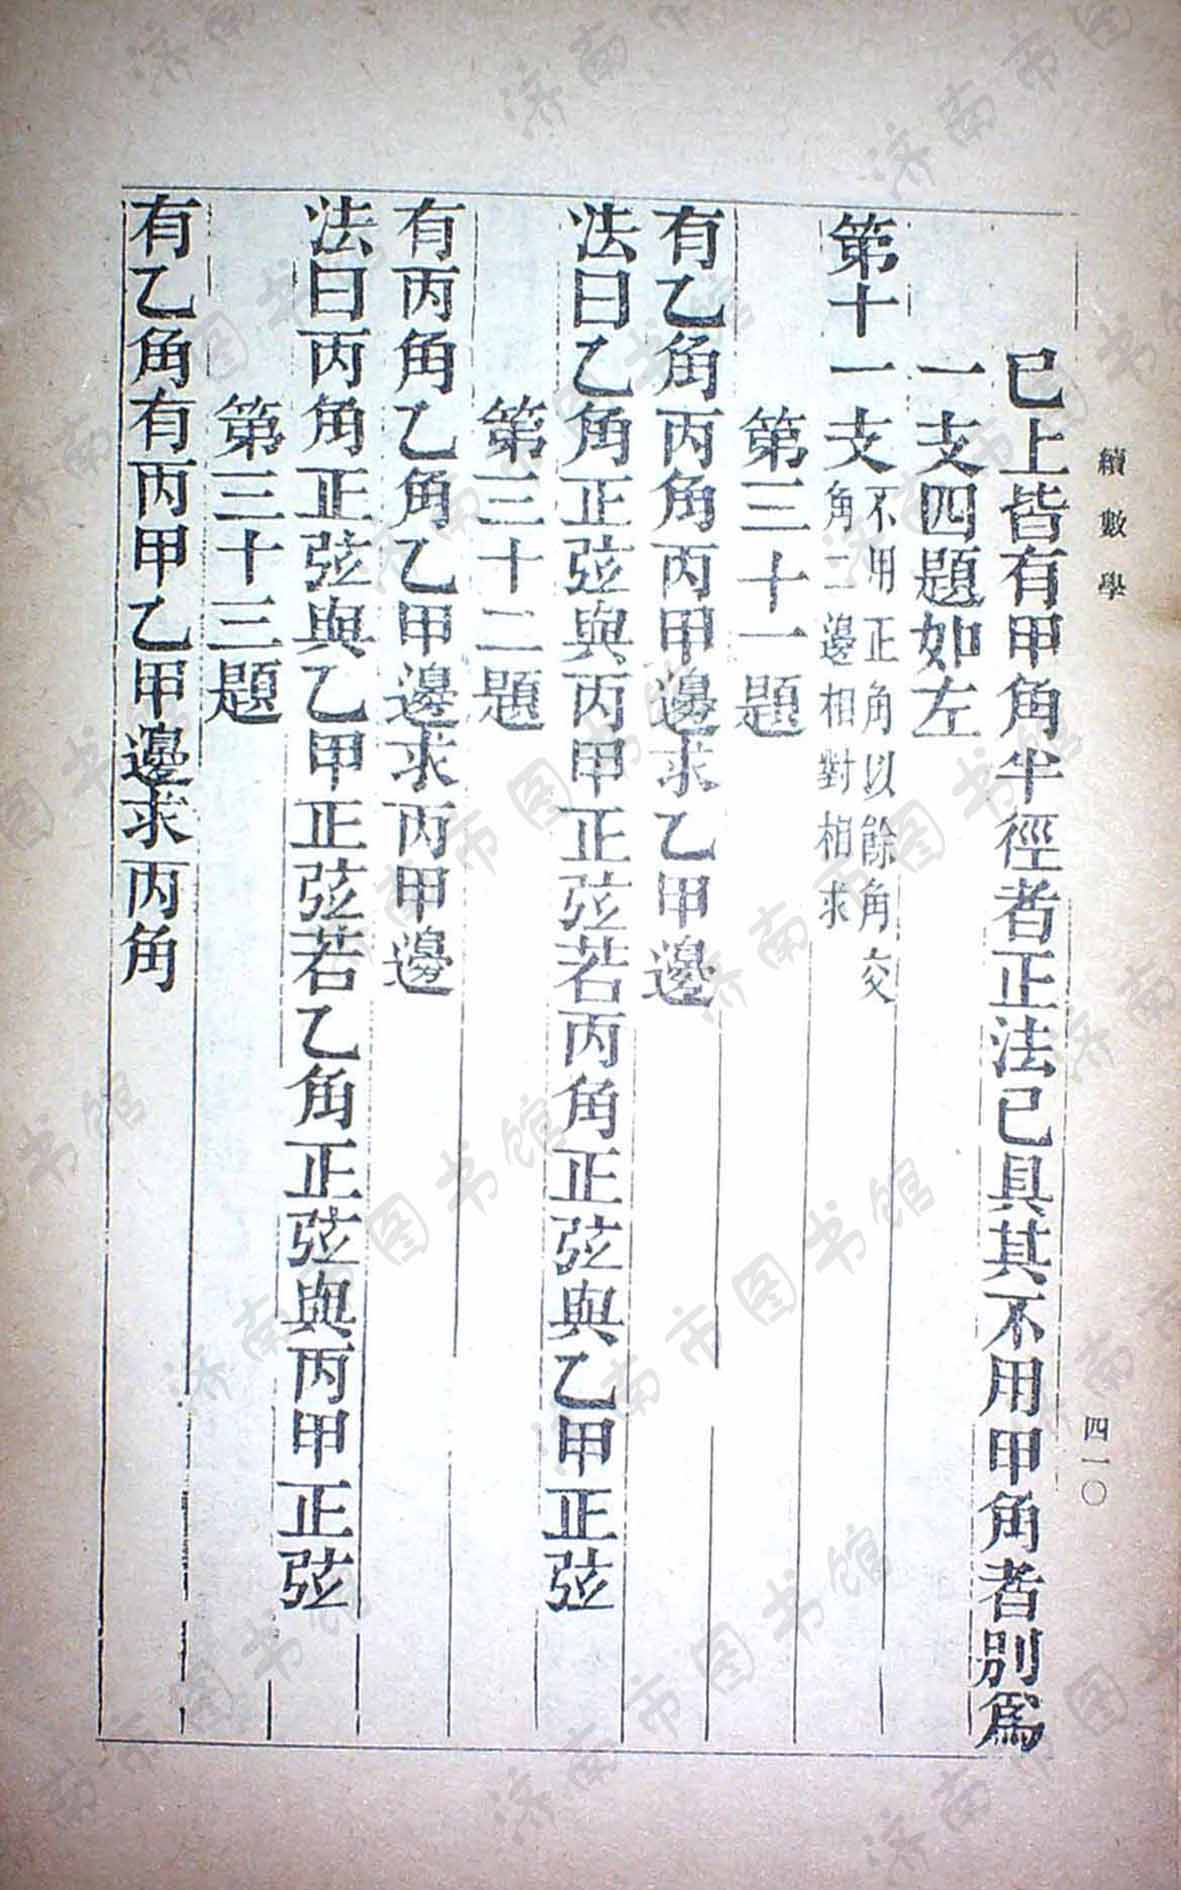 續數學
四一〇
已上皆有甲角半徑者正法已具其不用甲角者別爲
一支四題如左
第十一支不用正角以餘角交
角二邊相對相求
第三十一題
有乙角丙角丙甲邊求乙甲邊
法曰乙角正弦與丙甲正弦若丙角正弦與乙甲正弦
第三十二題
有丙角乙角乙甲邊求丙甲邊
法曰丙角正弦與乙甲正弦若乙角正弦與丙甲正弦
第三十三題
有乙角有丙甲乙甲邊求丙角
济南市图书馆